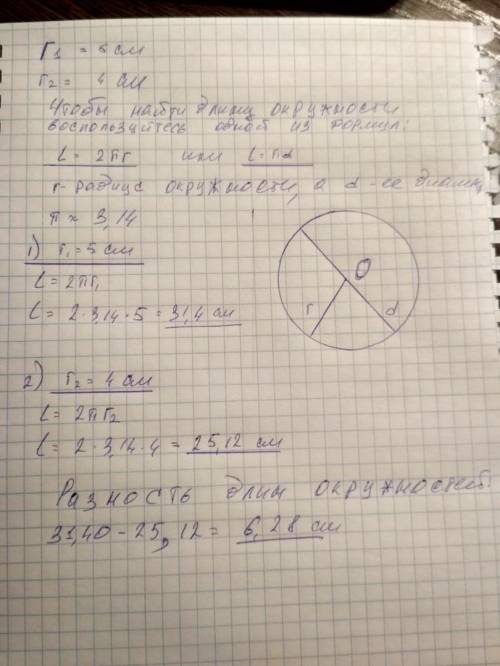 r₁ = 5 см
r₂ = 4 см
Чтобы найти длину окружности
воспользуйтесь одной из формул:
L = 2πr или L = πd
r - радиус окружности, а d - ее диаметр
π ≈ 3,14
1) r₁ = 5 см
L = 2πr₁
L = 2 · 3,14 · 5 = 31,4 см
O
r
d
2) r₂ = 4 см
L = 2πr₂
L = 2 · 3,14 · 4 = 25,12 см
Разность длин окружностей:
31,40 - 25,12 = 6,28 см